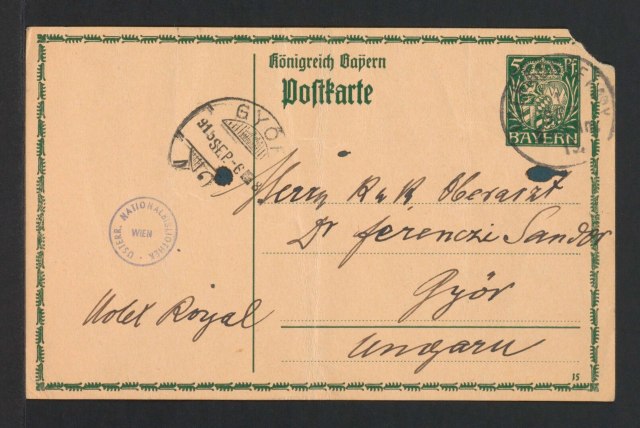 Königreich Bayern
Postkarte
5 Pf
BAYERN
GYŐR
915 SEP. -6
ÖSTERR. NATIONALBIBLIOTHEK
WIEN
Herrn K u K Oberarzt
Dr ferenczi Sandor
Győr
Hotel Royal
Ungarn
15